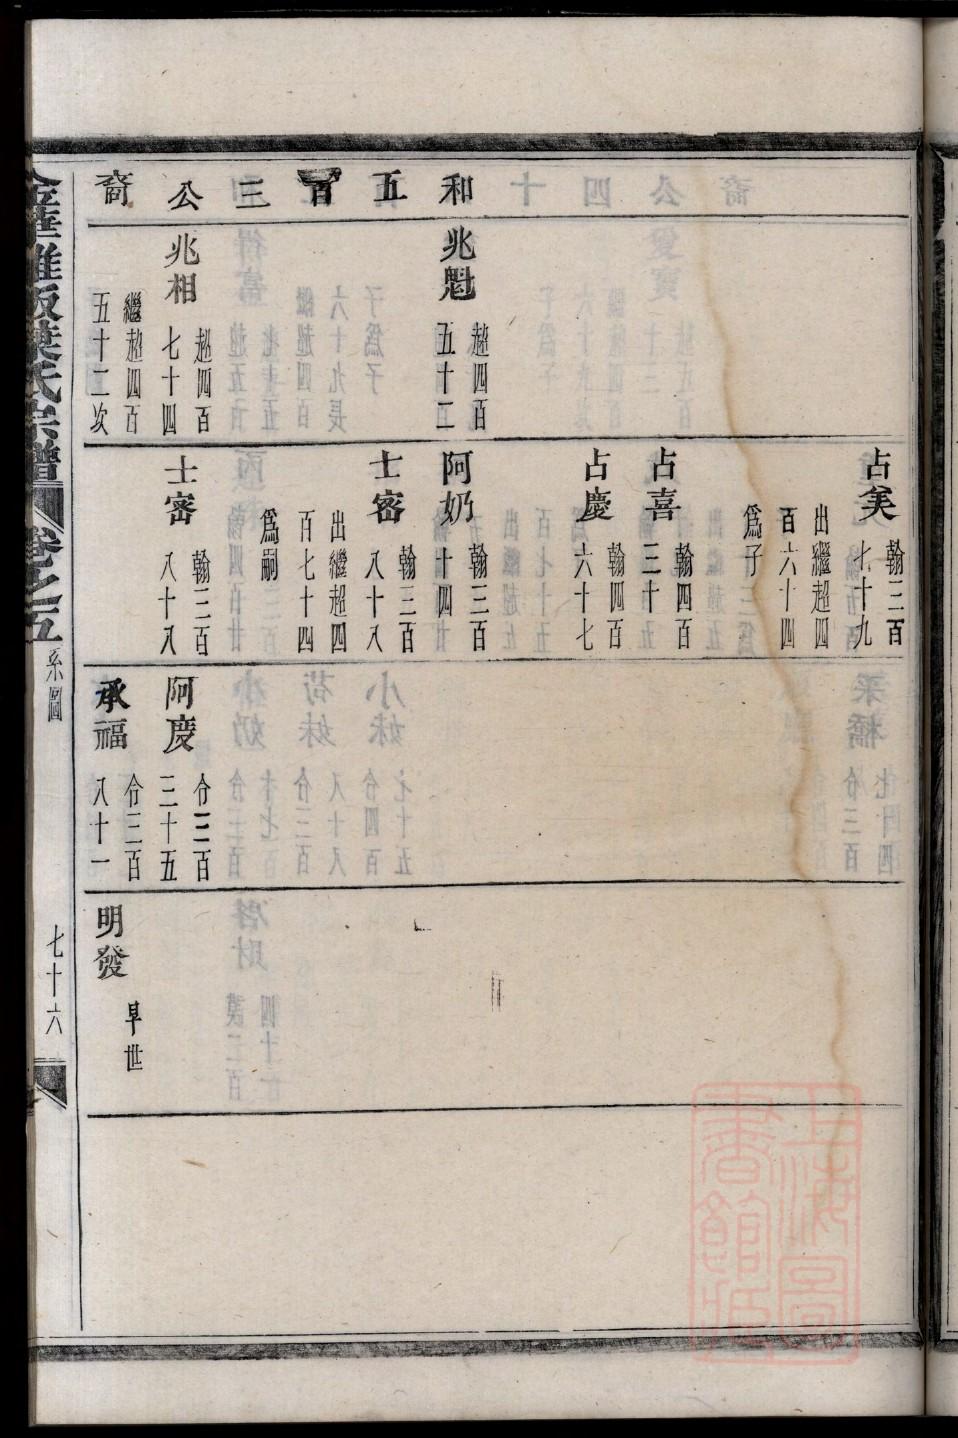 和五百三公裔
兆魁
超四百
五十二
兆相
超四百
七十四
繼超四百
五十二次
占美
翰三百
七十九
出繼超四
百六十四
為子
占喜
翰四百
三十
占慶
翰四百
六十七
阿奶
翰三百
十四
士密
翰三百
八十八
出繼超四
百七十四
為嗣
士密
翰三百
八十八
阿慶
分三百
三十五
承福
分三百
八十一
明發
早世
葉氏宗譜
卷之五
系圖
七十六
上海圖
書館藏